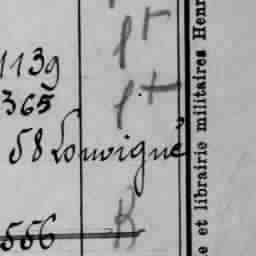 1139
365
58 Louvigné
556
R
e et librairie militaires Henr